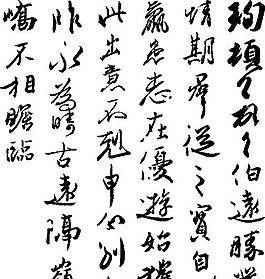 珣頓〻首〻伯遠勝業
情期羣從之寶自
羸患志在優遊始獲
此出意不剋申分別
昨永為疇古遠隔嶺
嶠不相瞻臨